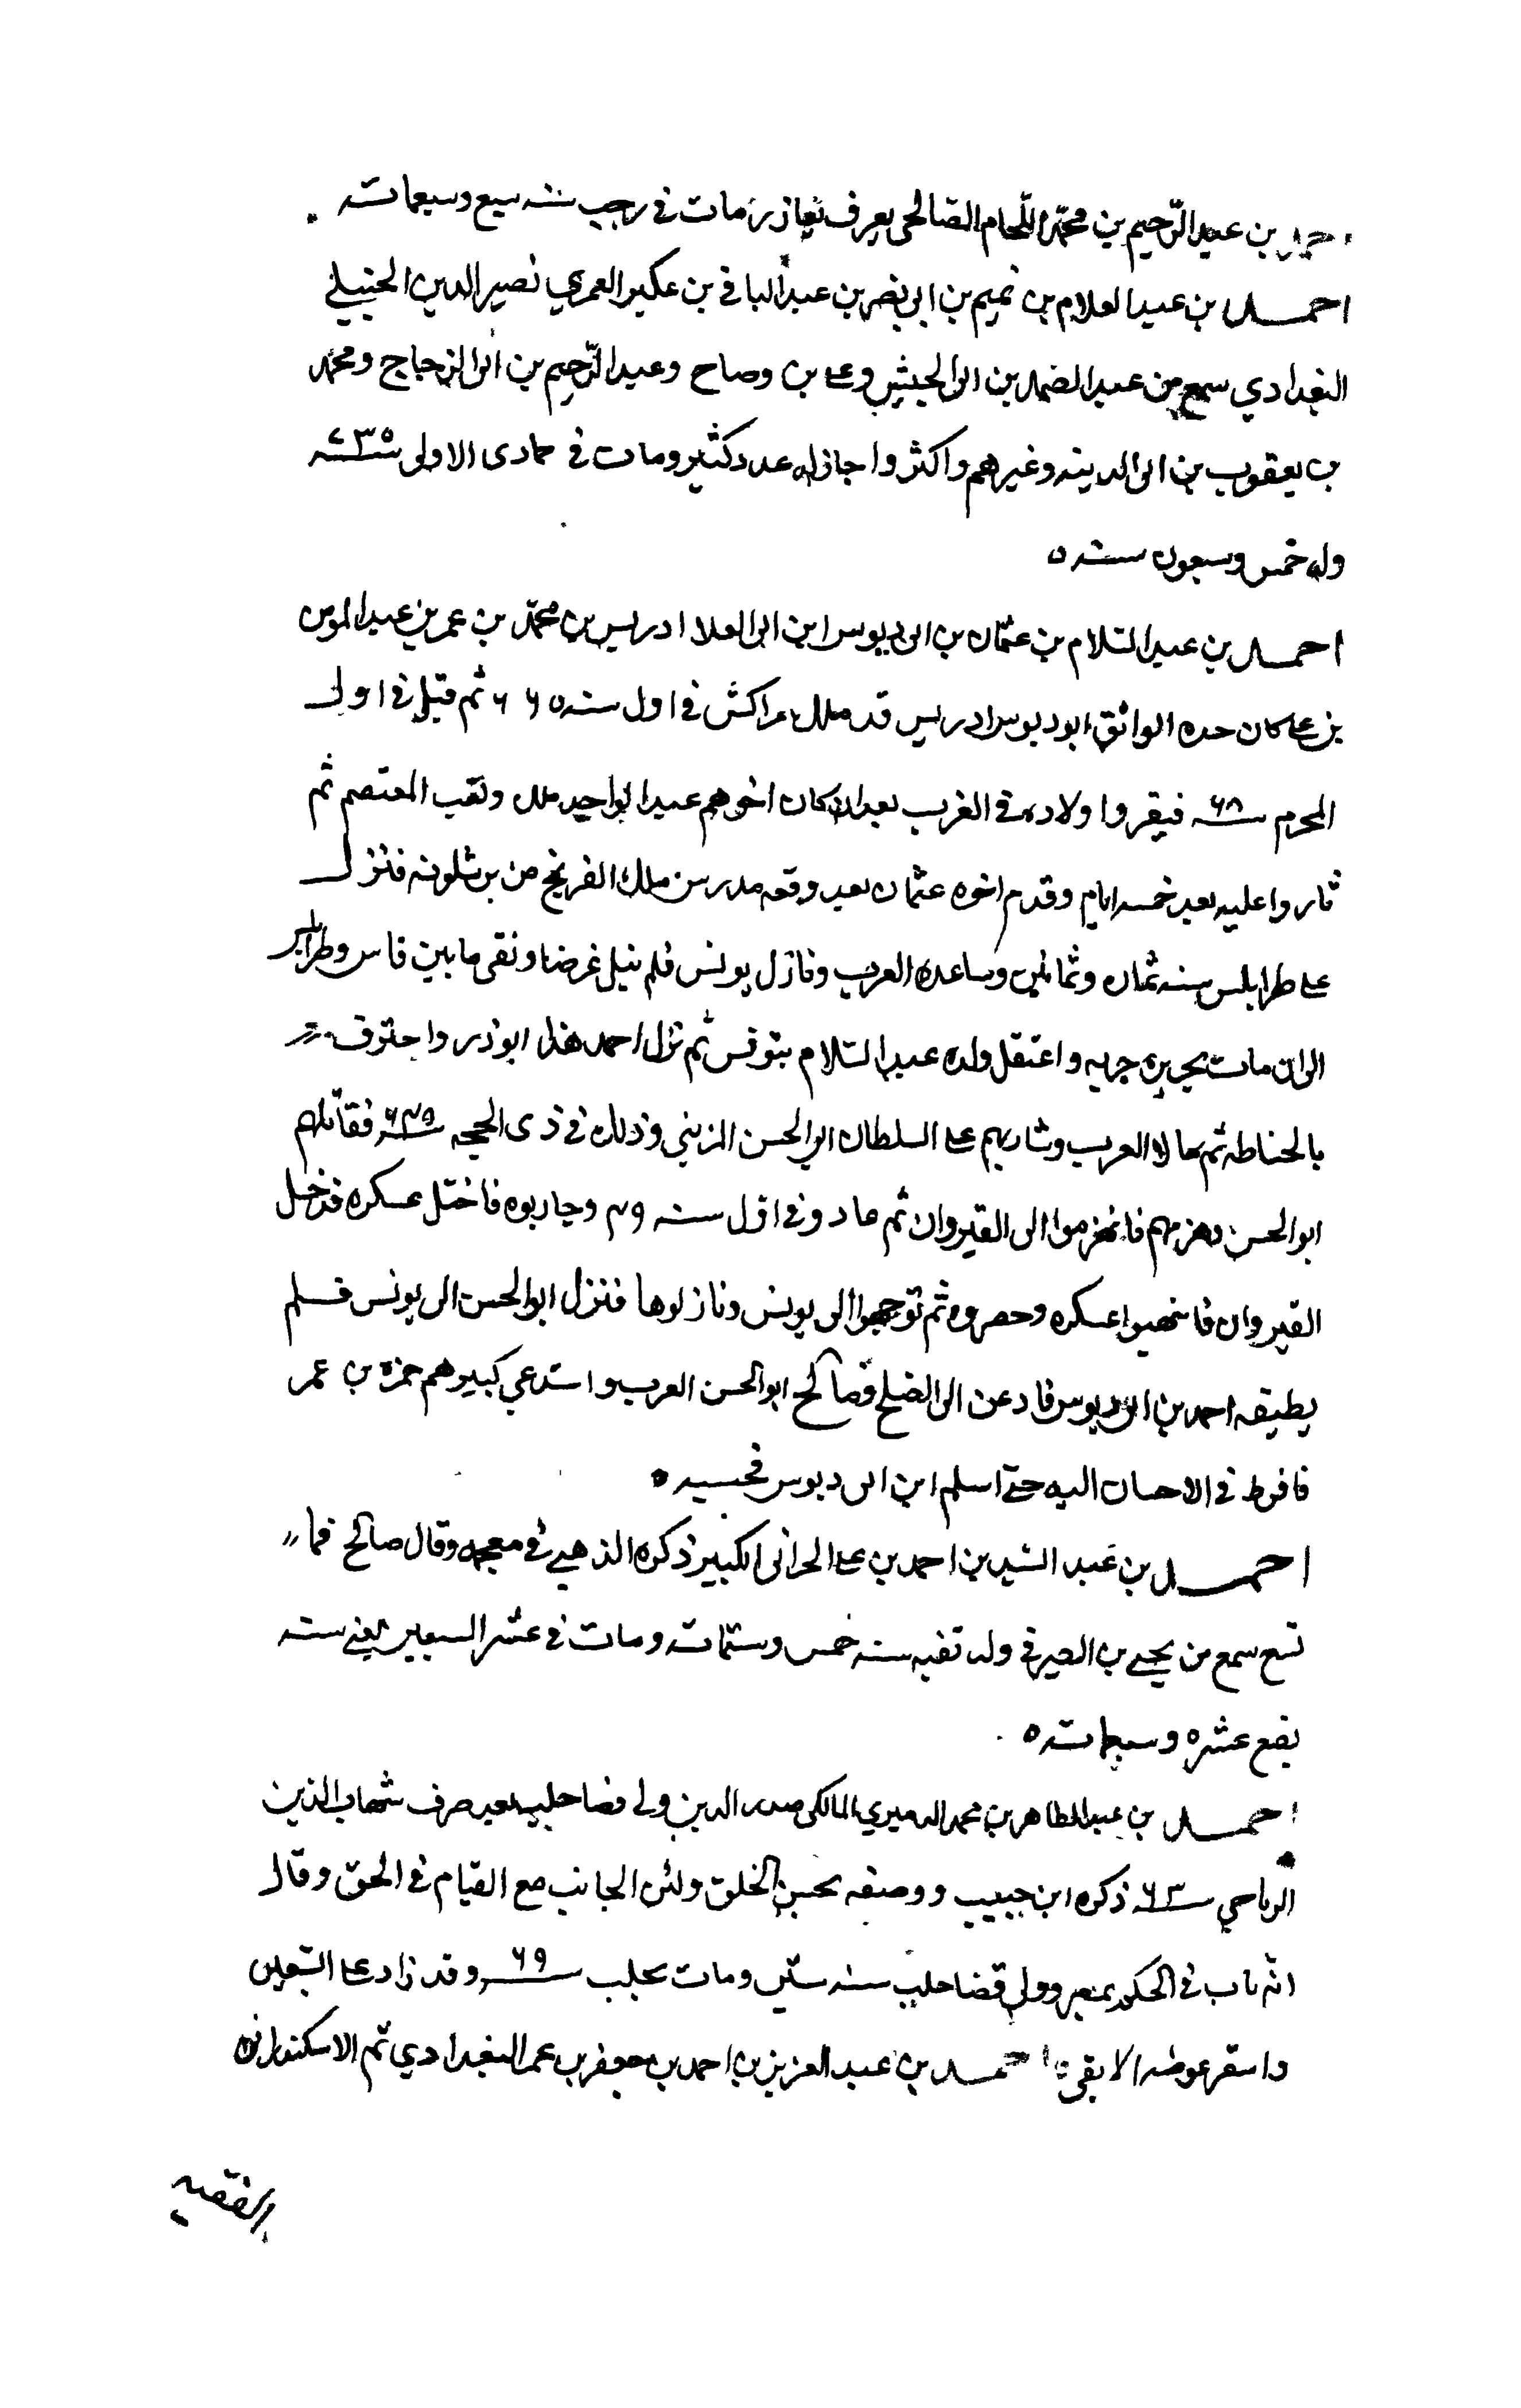 احمد بن عبد الرّحيم بن محمّد اللّحام الصّالحى يعرف مات فى رجب سنه سبع وسبعمائة
احمد بن عبد السلام بن تميم بن ابى نصر بن عبد الباقى بن عكبر العمري نصير الدين الحنبلي
البغدادي سمع من عبد الصمد بن ابى الجيش وعلى بن وضاح وعبد الرّحيم بن الزجاج ومحمد
بن يعقوب بن ابى الدينه وغيرهم واكثر واجاز له عدد كثير ومات فى جمادى الاولى سنه ٧٣٥
وله خمس وسبعون سنه ٥
احمد بن عبد السّلام بن عثمان بن ابى دبوس ابن ابى العلا ادريس بن محمّد بن عمر بن عبد المومن
بن على كان جده الواثق ابو دبوس ادريس قد ملك مراكش فى اول سنه ٦٦٥ ثم قتل فى اول
المحرم سنه ٦٨ فتفرقوا ولاده فى الغرب بعد ان كان اخوهم عبد الواحد ملك ولقب المعتصم ثم
ثاروا عليه بعد خمسه ايام وقدم اخوه عثمان بعد وقعه ملك الفرنج من برشلونه فنزل
على طرابلس سنه ثمان وثمانين وساعده العرب ونازل يونس فلم ينل غرضا وبقى ما بين قابس وطرابلس
الى ان مات بجزيره جربه واعتقل ولده عبد السّلام بتونس ثم نزل احمد هذا واحترف
بالخياطه ثم العرب وثار بهم على السلطان ابى الحسن المرينى وذلك فى ذى الحجه فقاتلهم
ابو الحسن وهزمهم فانهزموا الى القيروان ثم عادو فى اوّل سنه ٤٩ وحاربوه فاختل عسكره فدخل
القيروان فانتهبوا عسكره وحصروه ثم توجهوا الى يونس ونازلوها فنزل ابو الحسن الى يونس فلم
يطيقه احمد بن ابى دبوس فادعن الى الصّلح فصالح ابو الحسن العرب واستدعي كبيرهم حمزة بن عمر
فافرط فى الاحسان اليه حتى اسلم ابن ابى دبوس فحبسه ٥
احمد بن عبد السيد بن احمد بن على الحرانى الكبير ذكره الذهبي فى معجمه وقال صالح
سمع من يحيى بن الصيرفى ولد سنه خمس وستمائة ومات فى عشر السبعين يعني سنه
بضع عشره وسبعمائة ٥
احمد بن عبد الظاهر بن محمد الدميري المالكى صدر الدين ولى قضا حلب بعد صرف شهاب الدين
الرباحي سنه ٦٣ ذكره ابن حبيب ووصفه بحسن الخلق ولين الجانب مع القيام فى الحق وقال
انه ناب فى الحكم بمصر وولى قضا حلب سنه ستّين ومات بحلب سنه ٦٩ وقد زاد على السّبعين
احمد بن عبد العزيز بن احمد بن جعفر بن عمر البغدادي ثم الاسكندرانى
الفقيه